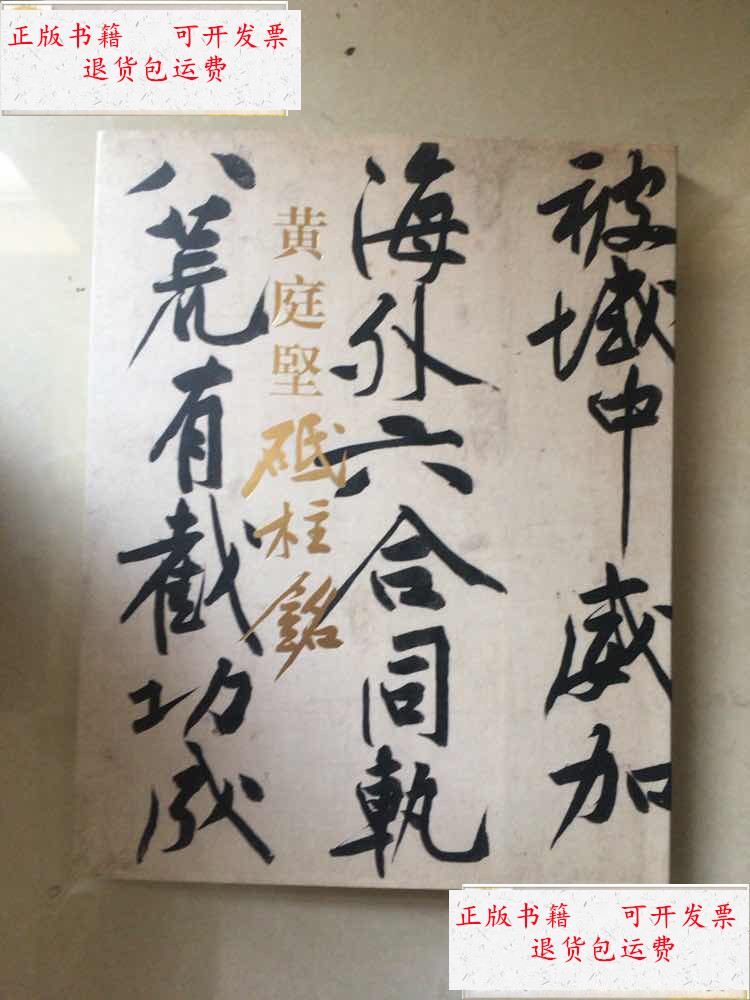 正版书籍 可开发票
退货包运费
被域中威加
海外六合同軌
八荒有截功成
黄庭堅
砥柱銘
正版书籍 可开发票
退货包运费